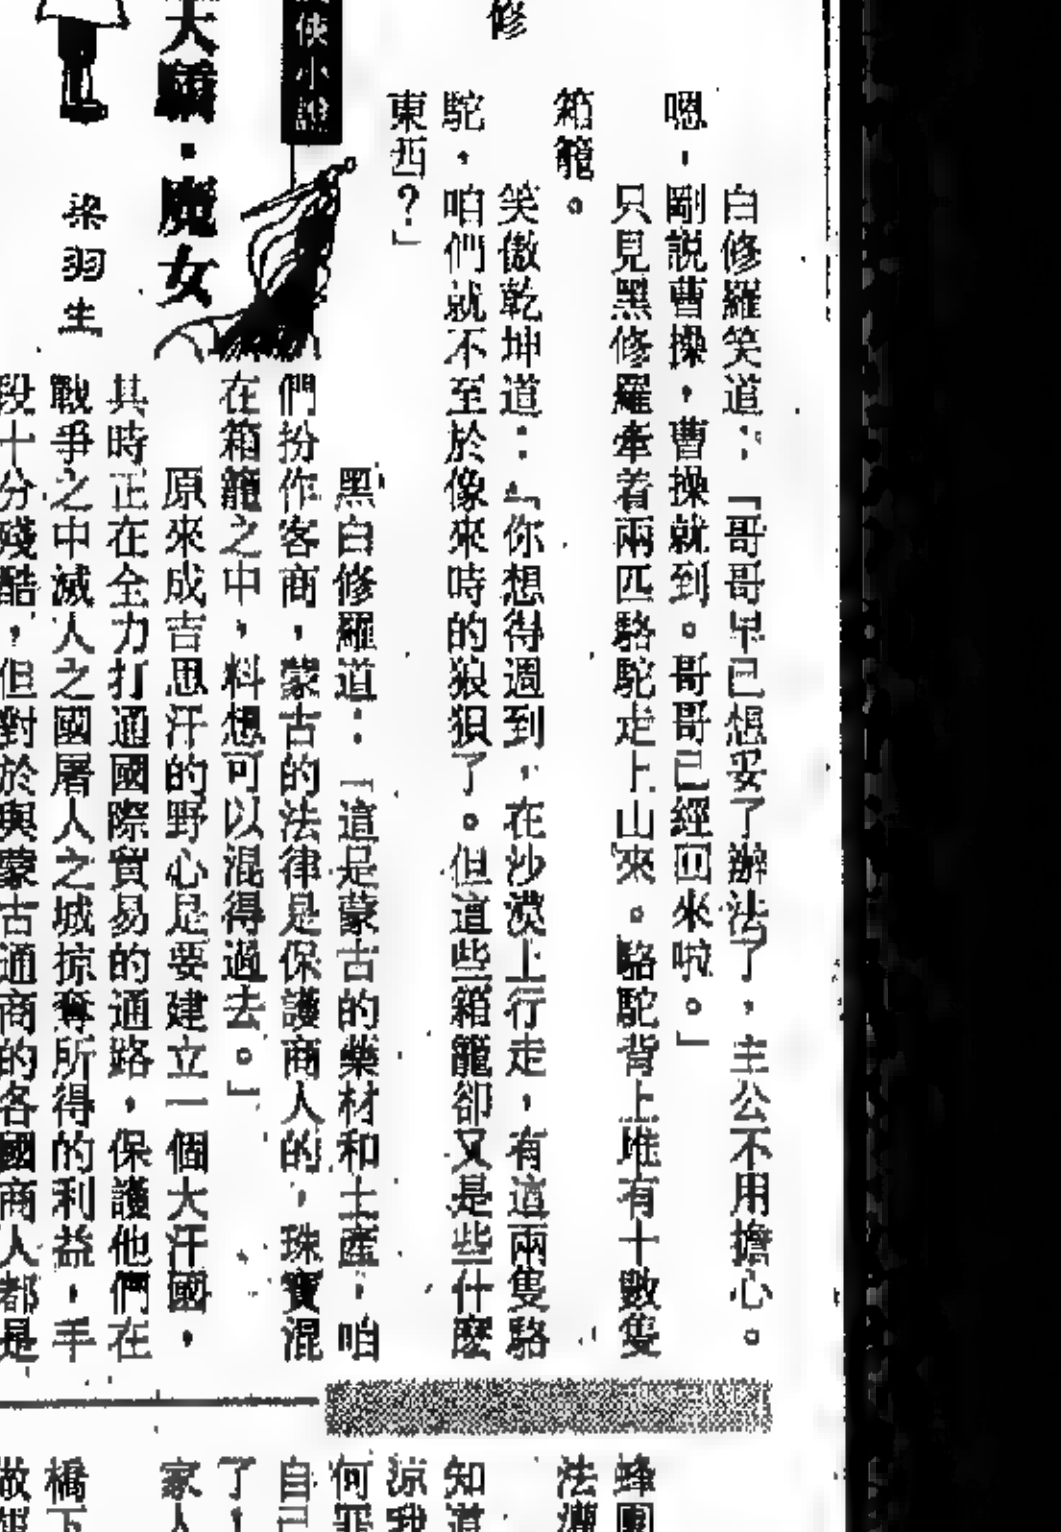 修
白修羅笑道：「哥哥早已想妥了辦法了，主公不用擔心。
嗯，剛説曹操，曹操就到。哥哥已經回來啦。」
只見黑修羅牽着兩匹駱駝走上山來。駱駝背上堆有十數隻
箱籠。
笑傲乾坤道：「你想得週到，在沙漠上行走，有這兩隻駱
駝，咱們就不至於像來時的狼狽了。但這些箱籠卻又是些什麼
東西？」
俠小說
大驕・魔女
梁羽生
黑白修羅道：「這是蒙古的藥材和土產，咱
們扮作客商，蒙古的法律是保護商人的，珠寶混
在箱籠之中，料想可以混得過去。」
原來成吉思汗的野心是要建立一個大汗國，
其時正在全力打通國際貿易的通路，保護他們在
戰爭之中滅人之國屠人之城掠奪所得的利益，手
段十分殘酷，但對於與蒙古通商的各國商人都是
蜂園
法
知道
涼我
何罪
自己
了！
家人
橋下
做